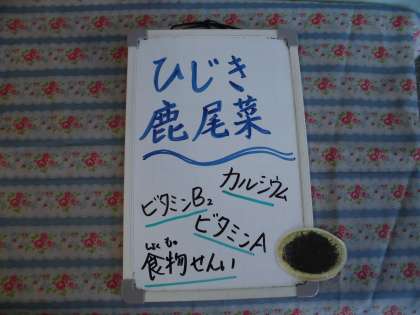 ひじき
鹿尾菜
カルシウム
ビタミンB₂
ビタミンA
しょくもつ
食物せんい